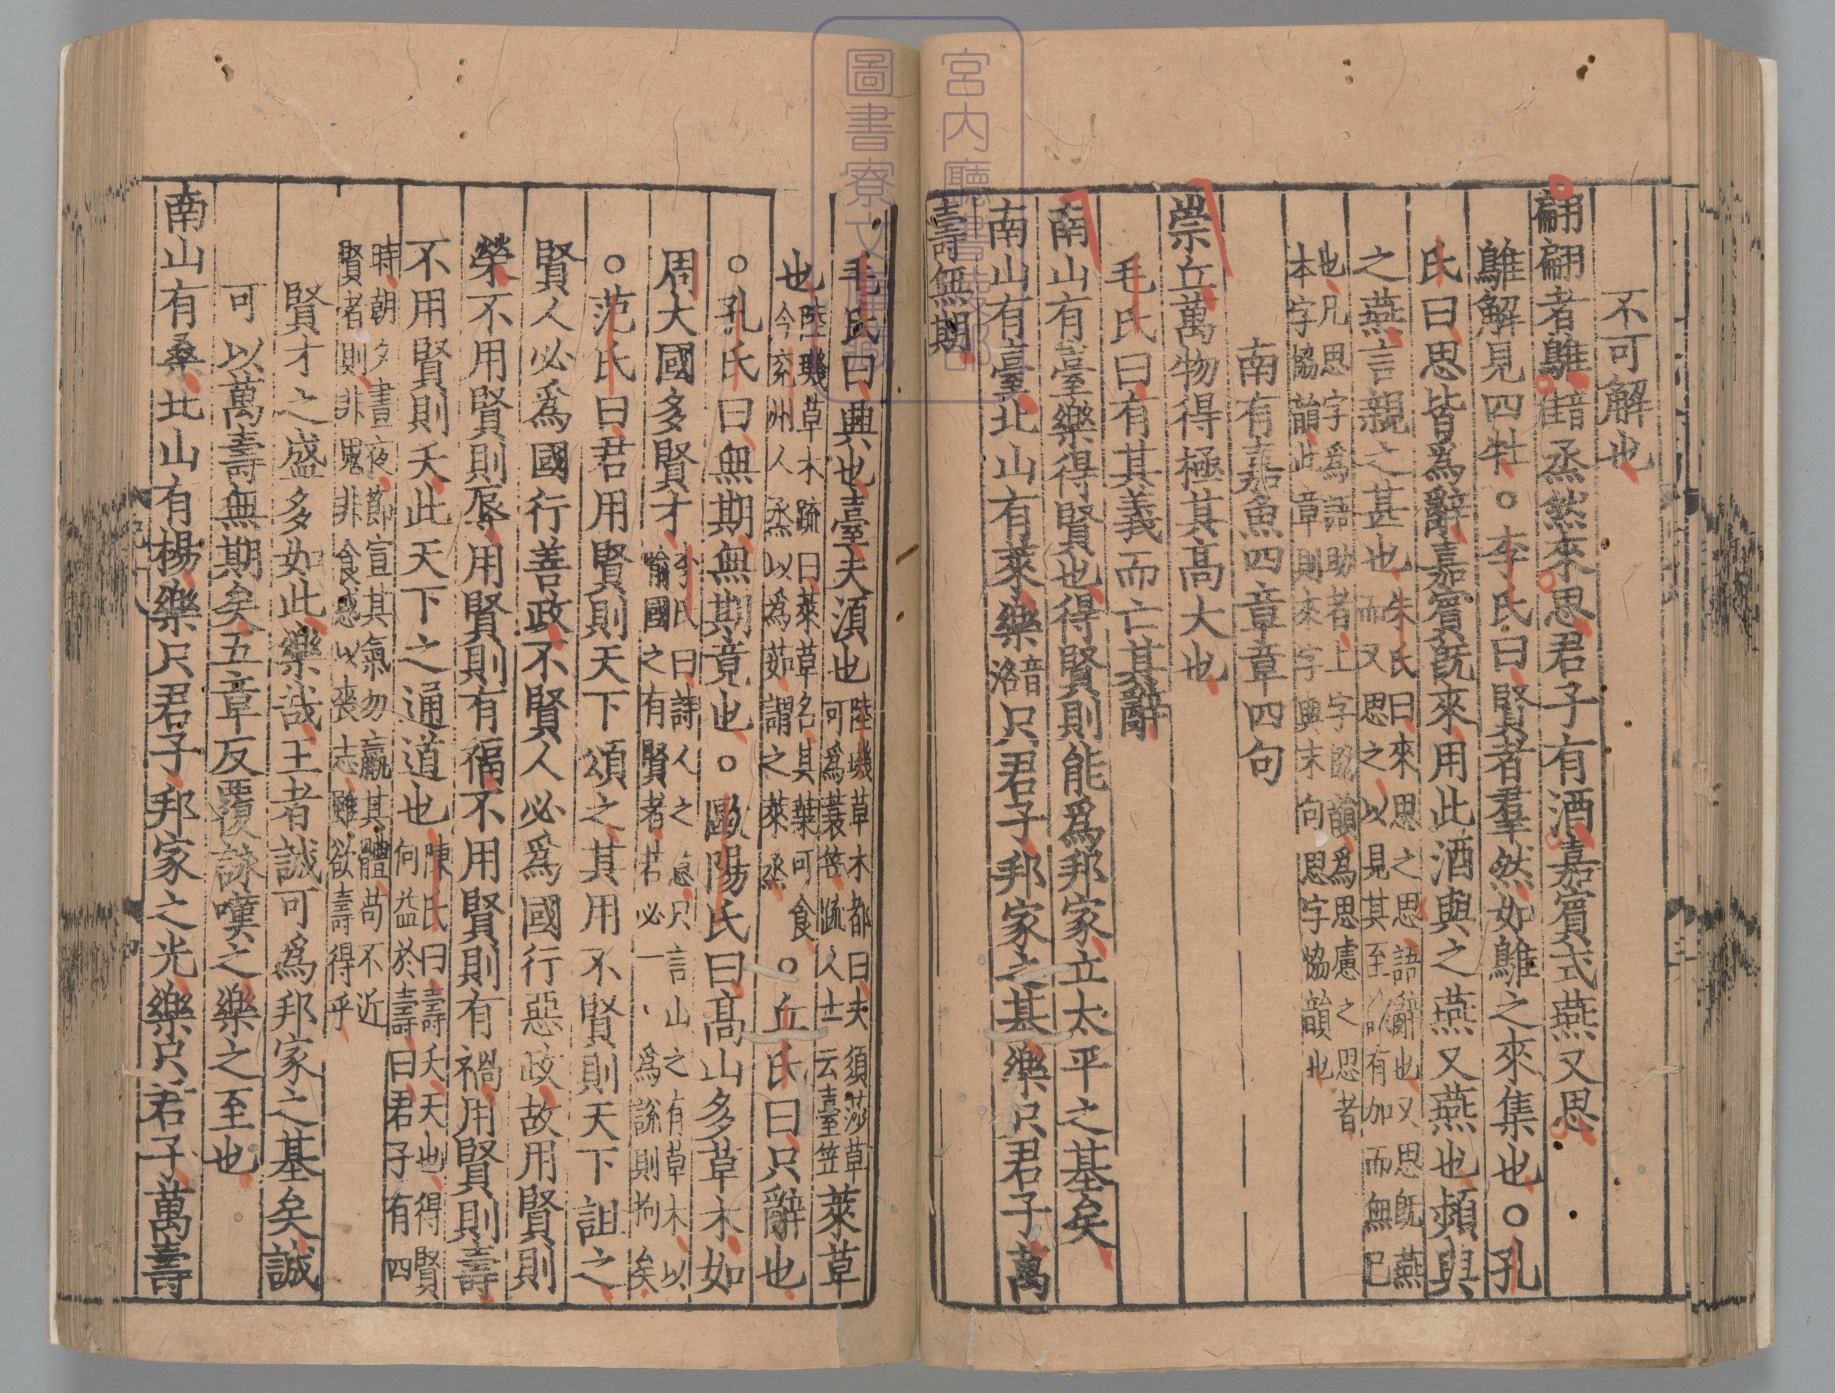 不可解也
翩翩者鵻音隹烝然來思君子有酒嘉賓式燕又思
鵻解見四牡○李氏曰賢者羣然如鵻之來集也○孔
氏曰思皆爲辭嘉賓旣來用此酒與之燕又燕也頻與
之燕言親之甚也朱氏曰來思之思語辭也又思旣燕
而又思之以見其至誠有加而無已
也凡思字爲語助者上字協韻爲思慮之思者
本字協韻此章則來字與末句思字協韻也
南有嘉魚四章章四句
崇丘萬物得極其高大也
毛氏曰有其義而亡其辭
南山有臺樂得賢也得賢則能爲邦家立太平之基矣
南山有臺北山有萊樂音洛只君子邦家之基樂只君子萬
壽無期
毛氏曰興也臺夫須也陸璣草木都曰夫須莎草
可爲蓑笠䟽人士云臺笠萊草
也陸璣草木䟽曰萊草名其葉可食
今兖州人烝以爲茹謂之萊烝○丘氏曰只辭也
○孔氏曰無期無期竟也○歐陽氏曰髙山多草木如
周大國多賢才李氏曰詩人之意只言山之有草木以
喻國之有賢者若必一一爲說則拘矣
○范氏曰君用賢則天下頌之其用不賢則天下詛之
賢人必爲國行善政不賢人必爲國行惡政故用賢則
榮不用賢則辱用賢則有福不用賢則有禍用賢則壽
不用賢則夭此天下之通道也陳氏曰壽夭天也得賢
何益於壽曰君子有四
時朝夕晝夜節宣其氣勿羸其體苟不近
賢者則非鬼非食惑以喪志雖欲壽得乎
賢才之盛多如此樂哉王者誠可爲邦家之基矣誠
可以萬壽無期矣五章反覆詠嘆之樂之至也
南山有桑北山有楊樂只君子邦家之光樂只君子萬壽
宮内廳書陵部
圖書寮文庫